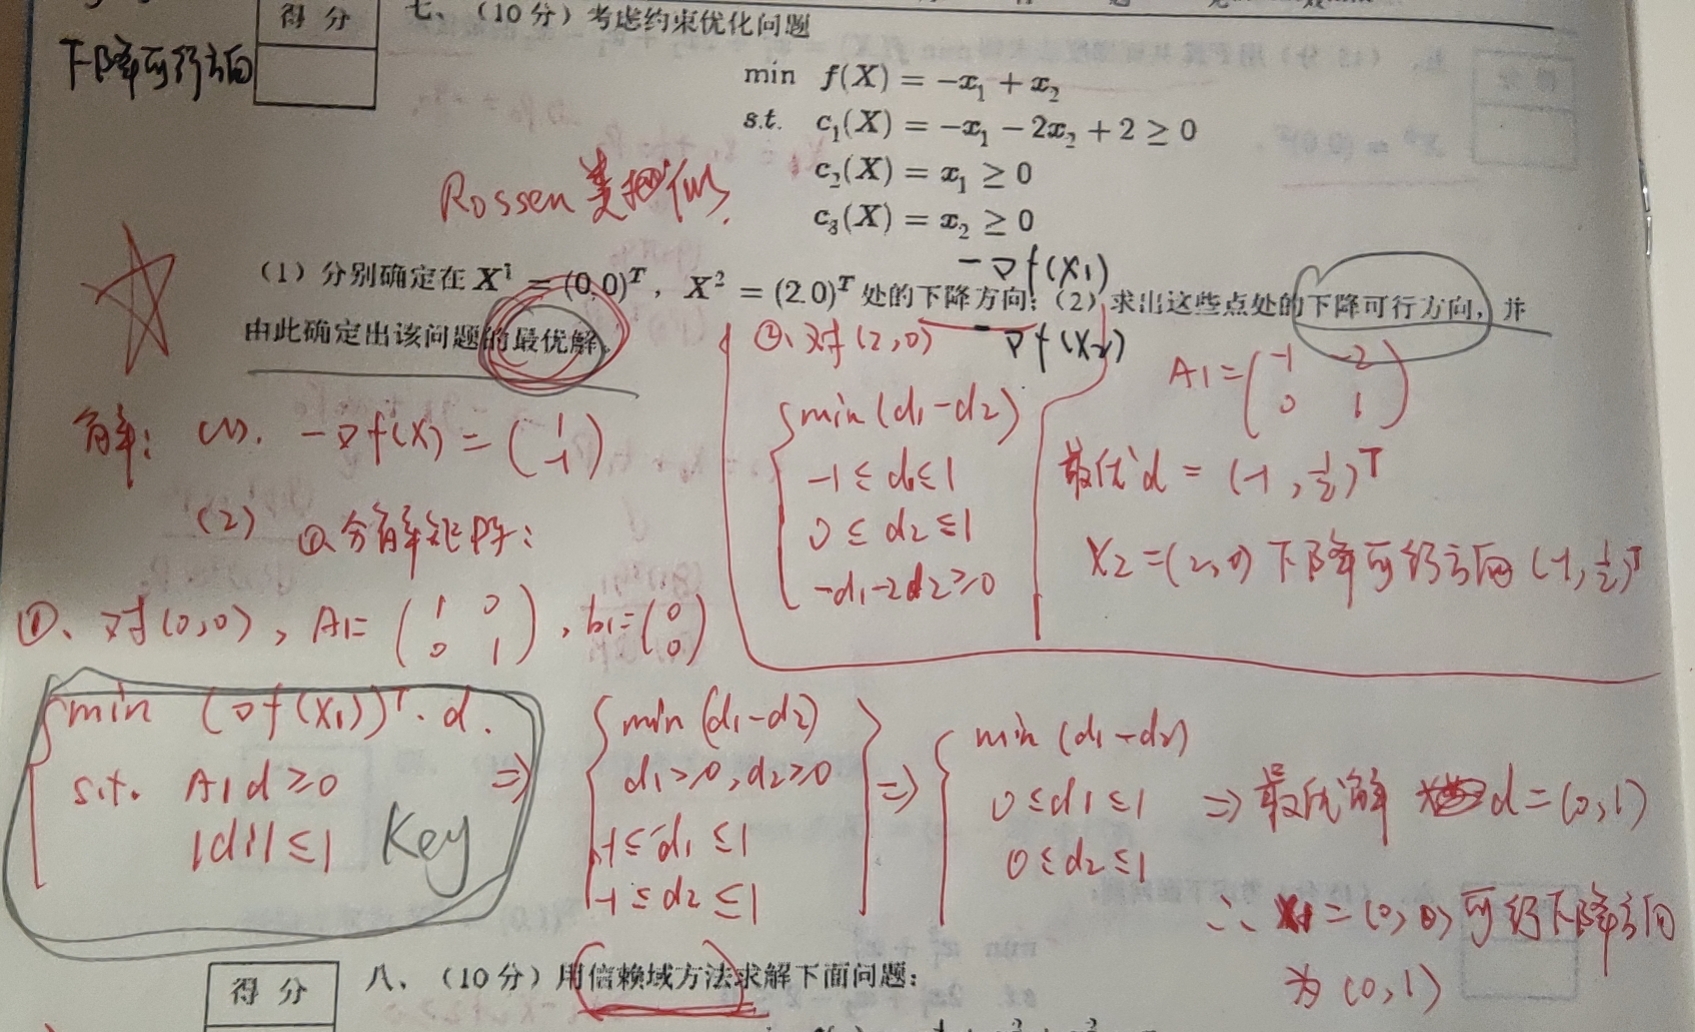 得 分
下降可行方向
七、（10分）考虑约束优化问题
min f(X) = −x₁ + x₂
s.t. c₁(X) = −x₁ − 2x₂ + 2 ≥ 0
c₂(X) = x₁ ≥ 0
c₃(X) = x₂ ≥ 0
Rossen 类似
（1）分别确定在 X¹ = (0,0)ᵀ，X² = (2.0)ᵀ 处的下降方向；（2）求出这些点处的下降可行方向，并
由此确定出该问题的最优解。
−▽f(X₁)
−▽f(X₂)
解：(1). −▽f(X) = (1 −1)
(2) ①分解矩阵：
①、对(0,0)，A1= (1 0 0 1)，b1= (0 0)
min (▽f(X₁))ᵀ·d.
s.t. A1d ≥0
|di| ≤1 Key
⇒
min (d₁−d₂)
d₁≥0, d₂≥0
-1≤d₁≤1
-1≤d₂≤1
⇒
min (d₁−d₂)
0≤d₁≤1
0≤d₂≤1
⇒ 最优解 d=(0,1)
∴ X1=(0,0)可行下降方向
为(0,1)
②、对(2,0)
min(d₁−d₂)
-1≤d₁≤1
0≤d₂≤1
-d₁-2d₂≥0
A1= (-1 -2 0 1)
最优d = (-1, ½)ᵀ
X2=(2,0)下降可行方向(-1,½)ᵀ
得 分
八、（10分）用信赖域方法求解下面问题：